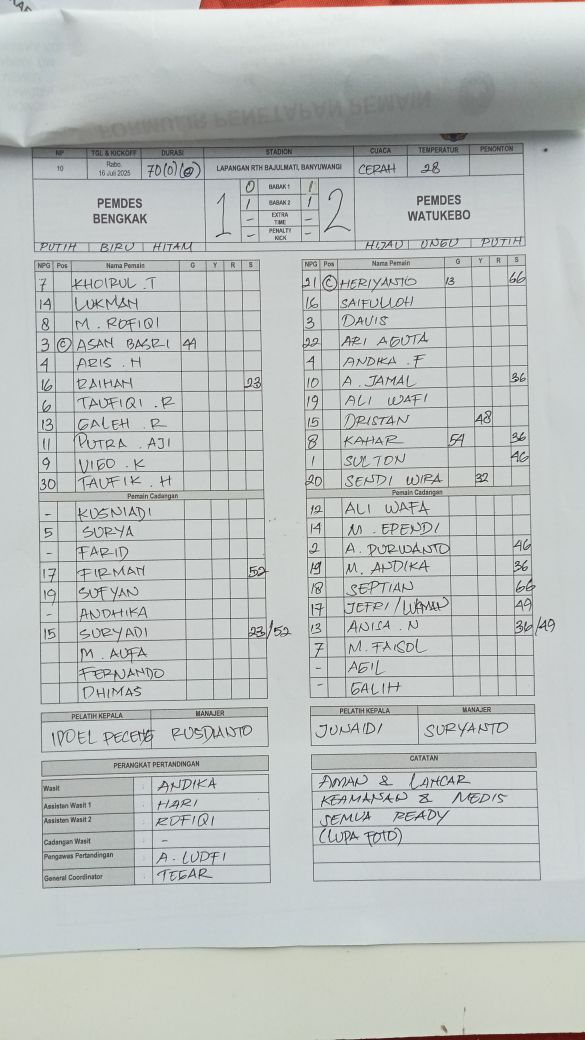 NP TGL & KICKOFF DURASI STADION CUACA TEMPERATUR PENONTON
10 Rabu, 16 Juli 2025 70(0)(0) LAPANGAN RTH BAJULMATI, BANYUWANGI CERAH 28
PEMDES BENGKAK 1 2 PEMDES WATUKEBO
0 BABAK 1 1
1 BABAK 2 1
- EXTRA TIME -
- PENALTY KICK -
PUTIH | BIRU | HITAM
HIJAU | UNGU | PUTIH
NPG Pos Nama Pemain G Y R S
7 KHOIRUL .T
14 LUKMAN
8 M. ROFIQI
3 (C) ASAN BASRI 44
4 ARIS .H
16 RAIHAN 23
6 TAUFIQI .R
13 GALEH .R
11 PUTRA .AJI
9 VIGO .K
30 TAUFIK .H
Pemain Cadangan
- KUSNIADI
5 SURYA
- FARID
17 FIRMAN 52
19 SUFYAN
- ANDHIKA
15 SURYADI 23/52
M. AUFA
FERNANDO
DHIMAS
NPG Pos Nama Pemain G Y R S
21 (C) HERIYANTO 13 66
16 SAIFULLOH
3 DAVIS
22 ARI AGUTA
4 ANDIKA .F
10 A. JAMAL 36
19 ALI WAFI
15 DRISTAN 48
8 KAHAR 54 36
1 SULTON 46
20 SENDI WIRA 32
Pemain Cadangan
12 ALI WAFA
14 M. EPENDI
2 A. PURWANTO 46
19 M. ANDIKA 36
18 SEPTIAN 66
17 JEFRI/ 49
13 ANISA .N 36/49
7 M. FAISOL
- AGIL
- GALIH
PELATIH KEPALA MANAJER
IPOEL PECENG RUSDIANTO
PELATIH KEPALA MANAJER
JUNAIDI SURYANTO
PERANGKAT PERTANDINGAN
Wasit : ANDIKA
Assisten Wasit 1 : HARI
Assisten Wasit 2 : ROFIQI
Cadangan Wasit : -
Pengawas Pertandingan : A. LUDFI
General Coordinator : TEGAR
CATATAN
AMAN & LANCAR
KEAMANAN & MEDIS
SEMUA READY
(LUPA FOTO)